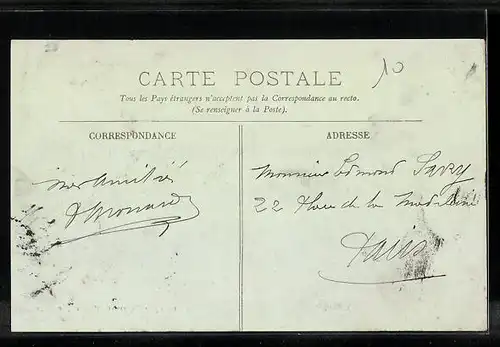 10
CARTE POSTALE
Tous les Pays étrangers n'acceptent pas la Correspondance au recto.
(Se renseigner à la Poste).
CORRESPONDANCE
ADRESSE
Monsieur Edmond Savy
mes Amitiés
22 Place de la Madeleine
Paris